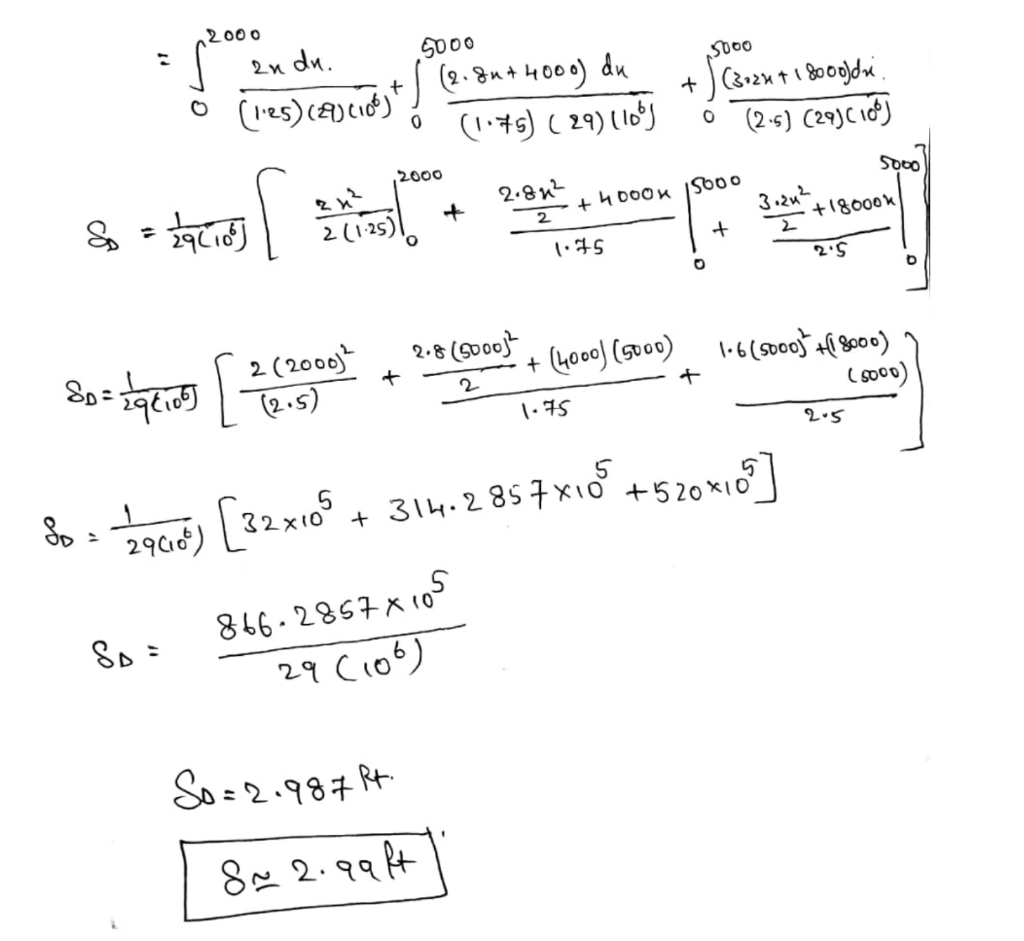 = ∫₀²⁰⁰⁰ 2x dx. / (1.25)(29)(10⁶) + ∫₀⁵⁰⁰⁰ (2.8x + 4000) dx / (1.75) (29)(10⁶) + ∫₀⁵⁰⁰⁰ (3.2x + 18000)dx. / (2.5) (29)(10⁶)
δ_D = 1/29(10⁶) [ 2x² / 2(1.25) |₀²⁰⁰⁰ + (2.8x²/2 + 4000x) / 1.75 |₀⁵⁰⁰⁰ + (3.2x²/2 + 18000x) / 2.5 |₀⁵⁰⁰⁰ ]
δ_D = 1/29(10⁶) [ 2(2000)² / (2.5) + (2.8(5000)²/2 + (4000)(5000)) / 1.75 + (1.6(5000)² + (18000)(5000)) / 2.5 ]
δ_D = 1/29(10⁶) [32×10⁵ + 314.2857×10⁵ + 520×10⁵]
δ_D = 866.2857×10⁵ / 29(10⁶)
δ_D = 2.987 ft.
δ ≃ 2.99 ft